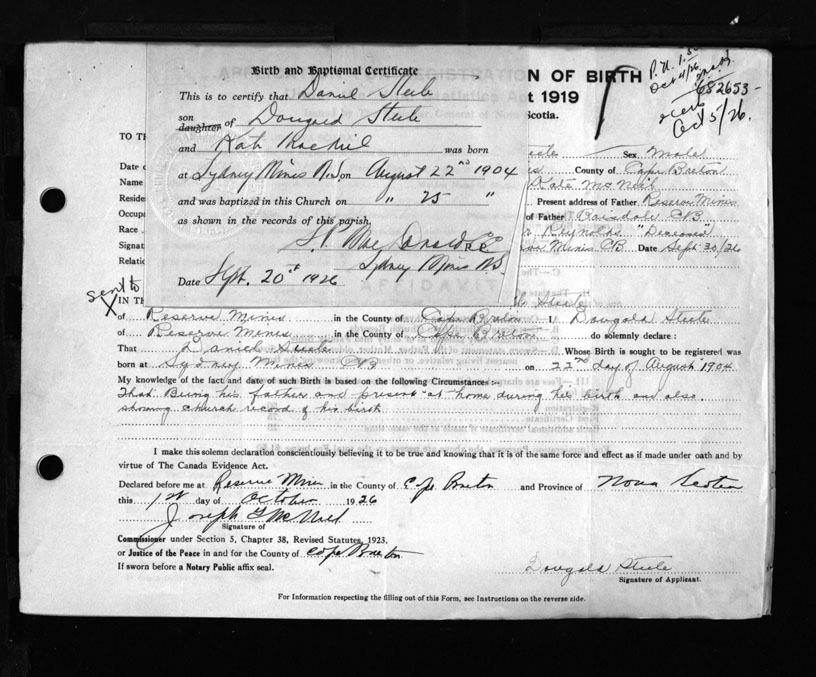 Birth and Baptismal Certificate
This is to certify that Daniel Steele
son
daughter of Dougald Steele
and Kate MacNeil was born
at Sydney Mines N.S. on August 22nd 1904
and was baptized in this Church on " 25 "
as shown in the records of this parish.
Mac Donald
Sydney Mines N.S.
Date Sept. 20th 1926
N OF BIRTH
t 1919
Scotia.
P.N. 1.50
Oct 4/26
682653-
Oct 5/26.
TO TH
Date o
Name
Reside
Occupa
Race
Signat
Relatio
Steele Sex Male
County of Cape Breton
Kate McNeil
Present address of Father Reserve Mines
of Father Barsdale CB
Reynolds "Deceased"
Mines CB Date Sept 30/26
sent to
X
IN TH Steele
of Reserve Mines in the County of Cape Breton I Dougald Steele
of Reserve Mines in the County of Cape Breton do solemnly declare :
That Daniel Steele Whose Birth is sought to be registered was
born at Sydney Mines CB on 22nd day of August 1904
My knowledge of the fact and date of such Birth is based on the following Circumstances :-
That Being his father and present at home during his birth and also
showing church record of his birth
I make this solemn declaration conscientiously believing it to be true and knowing that it is of the same force and effect as if made under oath and by
virtue of The Canada Evidence Act.
Declared before me at Reserve Mines in the County of Cape Breton and Province of Nova Scotia
this 1st day of October 1926
Joseph McNeil
Signature of
Commissioner under Section 5, Chapter 38, Revised Statutes, 1923,
or Justice of the Peace in and for the County of Cape Breton
If sworn before a Notary Public affix seal.
Dougald Steele
Signature of Applicant.
For Information respecting the filling out of this Form, see Instructions on the reverse side.